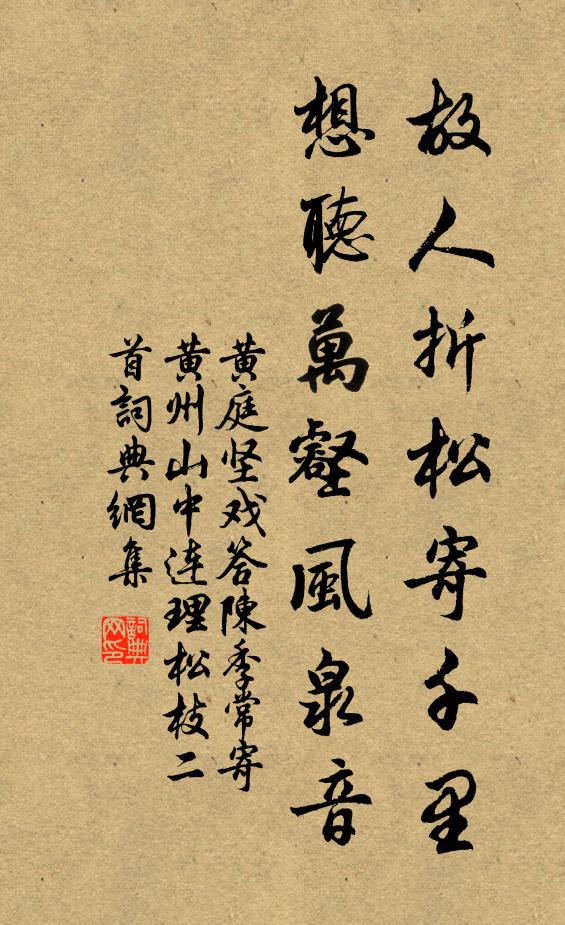 故人折松寄千里
想聽萬壑風泉音
黄庭坚戏答陳季常寄
黄州山中連理松枝二
首詞典網集
詞典
网印